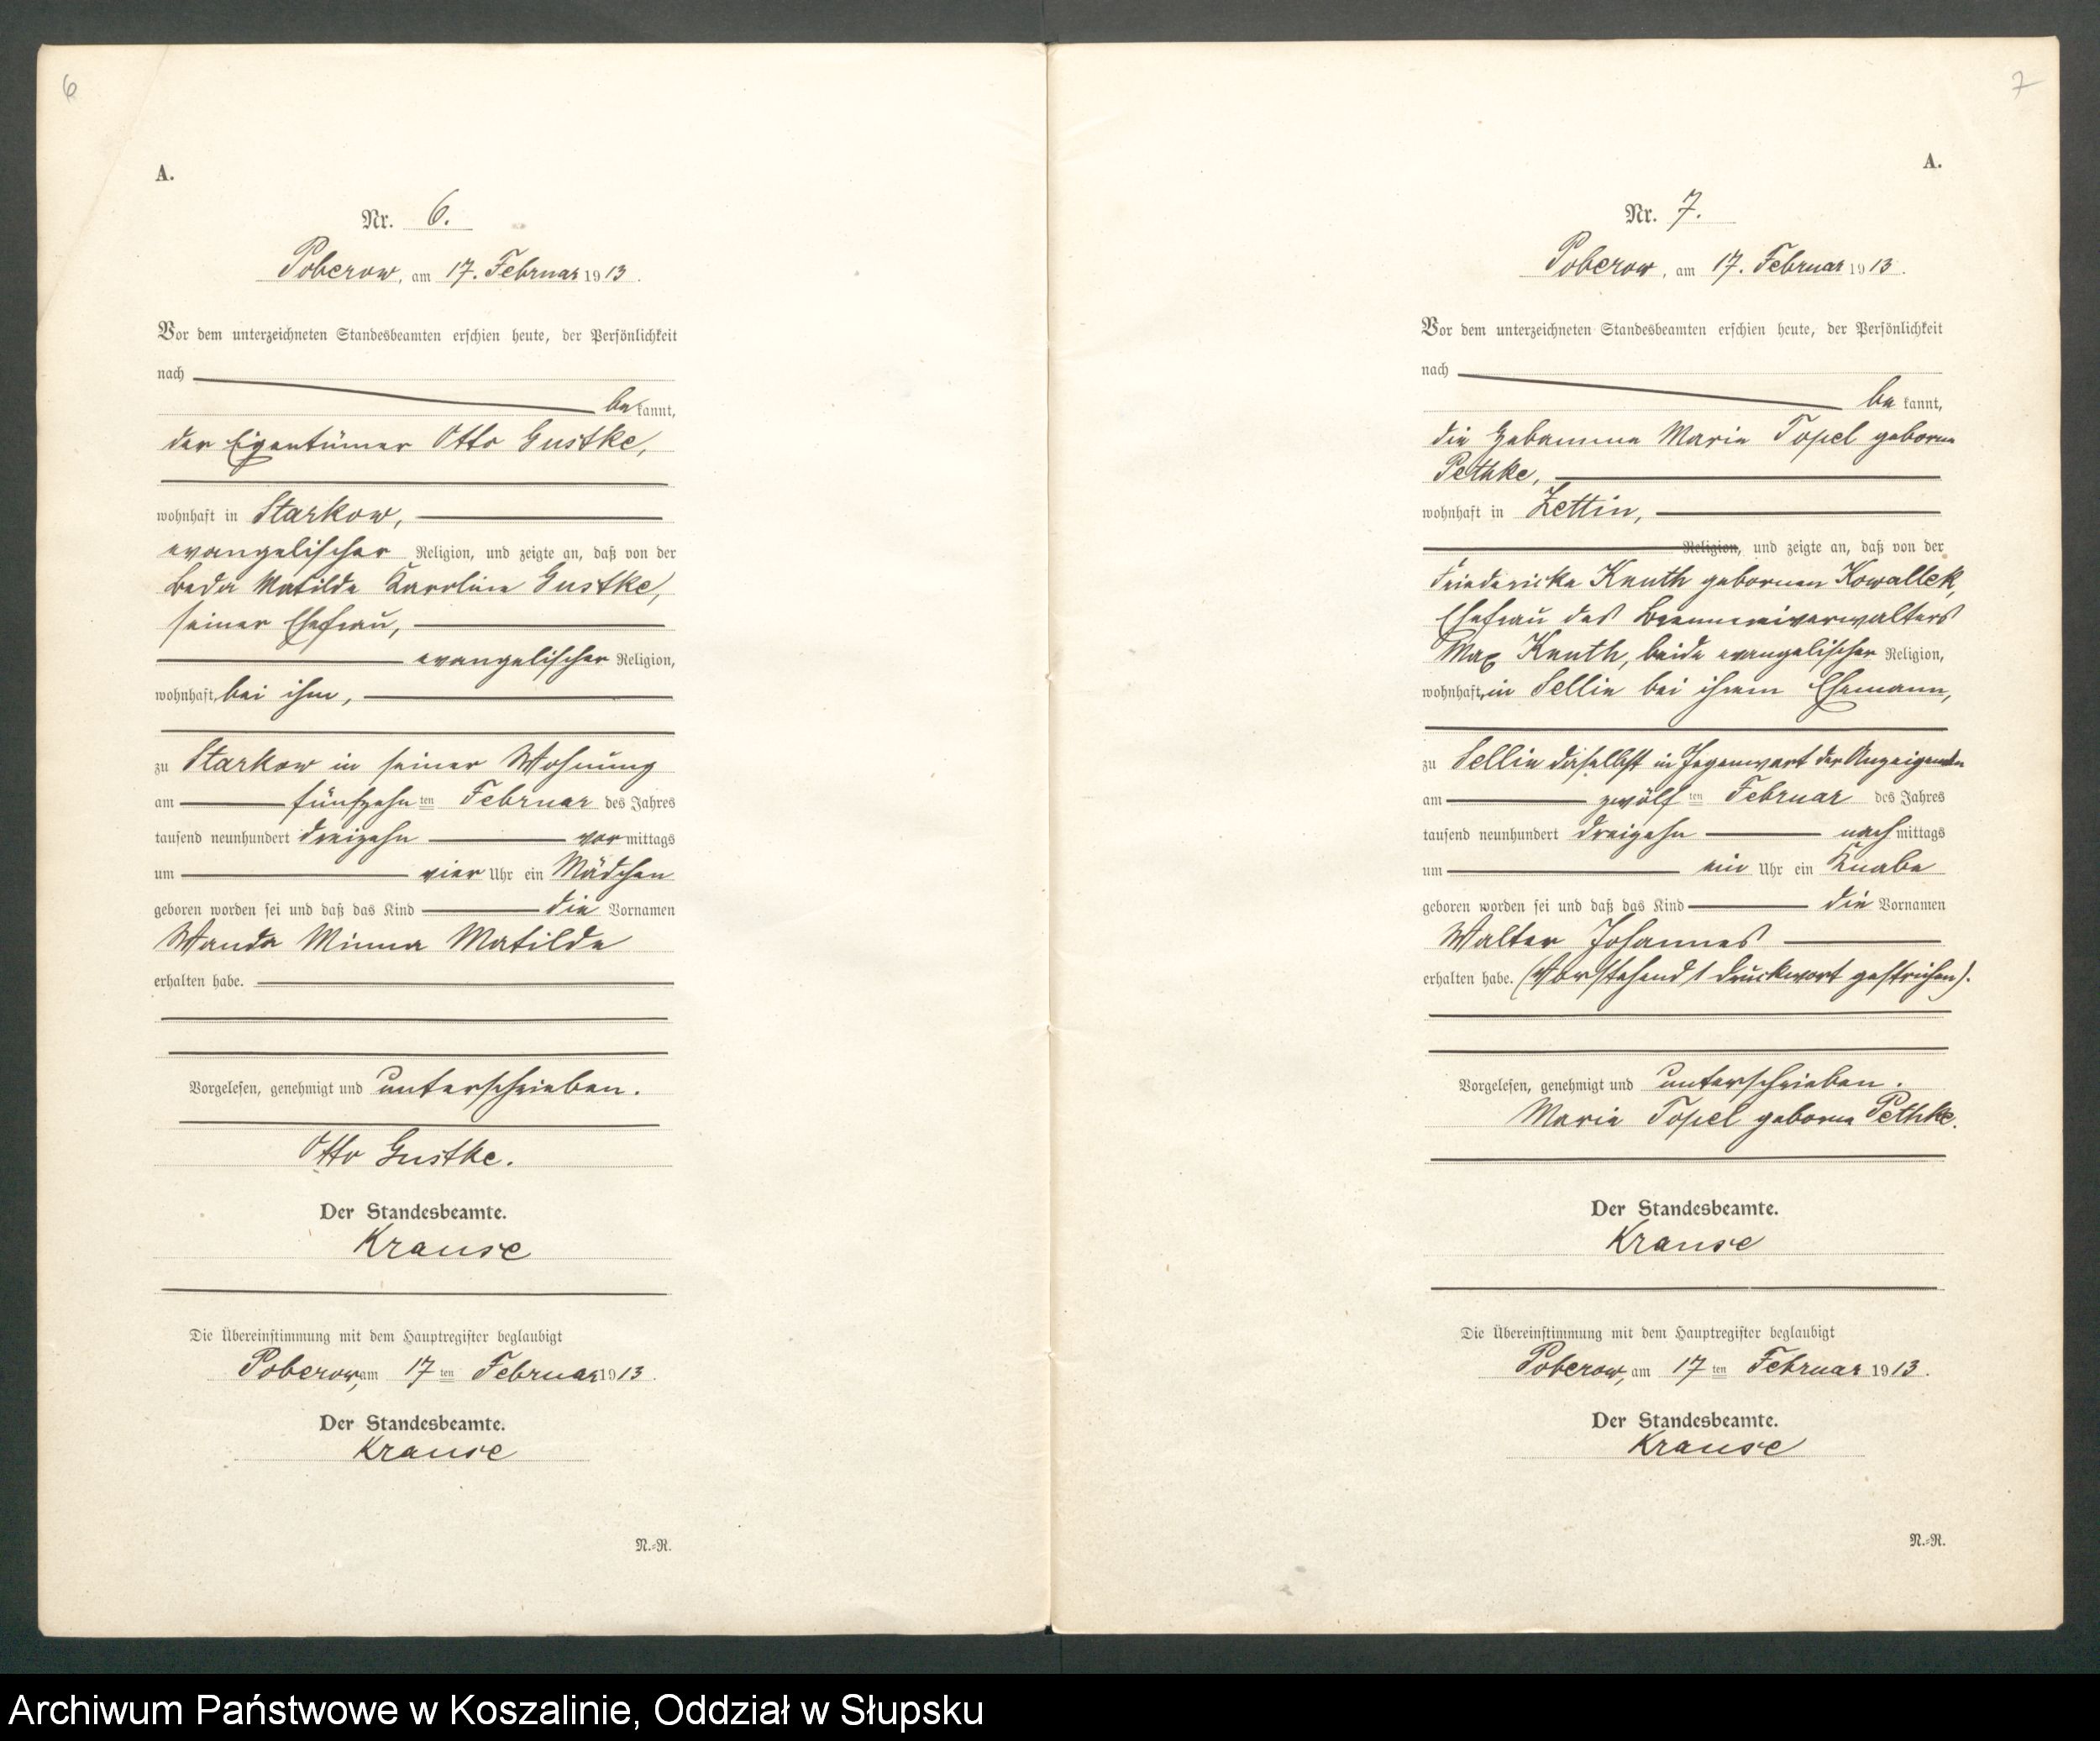 6
A.
Nr. 6.
Poberow, am 17. Februar 1913.
Vor dem unterzeichneten Standesbeamten erschien heute, der Persönlichkeit
nach
be kannt,
der Eigentümer Otto Gustke,
wohnhaft in Starkow,
evangelischer Religion, und zeigte an, daß von der
Matilde Karoline Gustke,
seiner Ehefrau,
evangelischer Religion,
wohnhaft, bei ihm,
zu Starkow in seiner Wohnung
am fünfzehn ten Februar des Jahres
tausend neunhundert dreizehn vor mittags
um vier Uhr ein Mädchen
geboren worden sei und daß das Kind die Vornamen
Wanda Minna Matilde
erhalten habe.
Vorgelesen, genehmigt und unterschrieben.
Otto Gustke.
Der Standesbeamte.
Krause
Die Übereinstimmung mit dem Hauptregister beglaubigt
Poberow, am 17 ten Februar 1913.
Der Standesbeamte.
Krause
N.-R.
7
A.
Nr. 7.
Poberow, am 17. Februar 1913.
Vor dem unterzeichneten Standesbeamten erschien heute, der Persönlichkeit
nach
be kannt,
die Hebamme Marie Topel geborne
Pethke,
wohnhaft in Zettin,
Religion, und zeigte an, daß von der
Friedericke Knuth gebornen Kowallek,
Ehefrau des Brennereiverwalters
Max Knuth, beide evangelischer Religion,
wohnhaft, in Sellin bei ihrem Ehemann,
zu Sellin daselbst in Gegenwart der Anzeigenden
am zwölf ten Februar des Jahres
tausend neunhundert dreizehn nach mittags
um ein Uhr ein Knabe
geboren worden sei und daß das Kind die Vornamen
Walter Johannes
erhalten habe. (Vorstehend 1 Druckwort gestrichen).
Vorgelesen, genehmigt und unterschrieben.
Marie Topel geborne Pethke.
Der Standesbeamte.
Krause
Die Übereinstimmung mit dem Hauptregister beglaubigt
Poberow, am 17 ten Februar 1913.
Der Standesbeamte.
Krause
N.-R.
Archiwum Państwowe w Koszalinie, Oddział w Słupsku